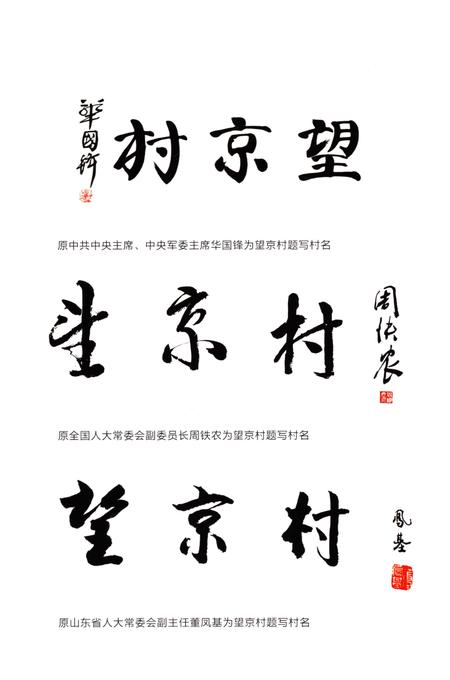 望京村
華國鋒
原中共中央主席、中央军委主席华国锋为望京村题写村名
望京村
周铁农
原全国人大常委会副委员长周铁农为望京村题写村名
望京村
鳳基
原山东省人大常委会副主任董凤基为望京村题写村名